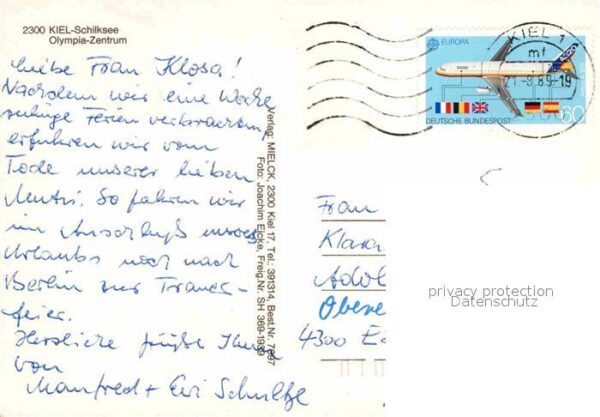 2300 KIEL-Schilksee
Olympia-Zentrum
Liebe Frau Klosa!
Nachdem wir eine Woche
ruhige Ferien verbrachten,
erfuhren wir vom
Tode unserer lieben
Mutti. So fahren wir
im Anschluß unseres
Urlaubs noch nach
Berlin zur Trauer-
feier.
Herzliche Grüße Ihnen
von
Manfred + Evi Schultze
Verlag: MIELCK, 2300 Kiel 17, Tel.: 391314, Best.Nr.
Foto: Joachim Ejcke, Freig.Nr. SH 369-1939
EUROPA
DEUTSCHE BUNDESPOST
60
KIEL 1
mf
21.-8.89-19
Frau
Klara
Adol
Obere
4300
privacy protection
Datenschutz